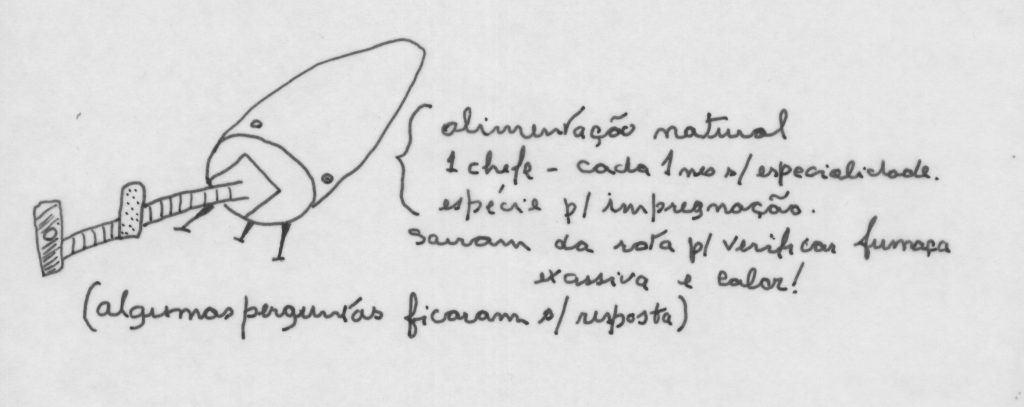 alimentação natural
1 chefe - cada 1 nas s/ especialidade.
espécie p/ impregnação.
sairam da rota p/ verificar fumaça
exassiva e calor!
(algumas perguntas ficaram s/ resposta)